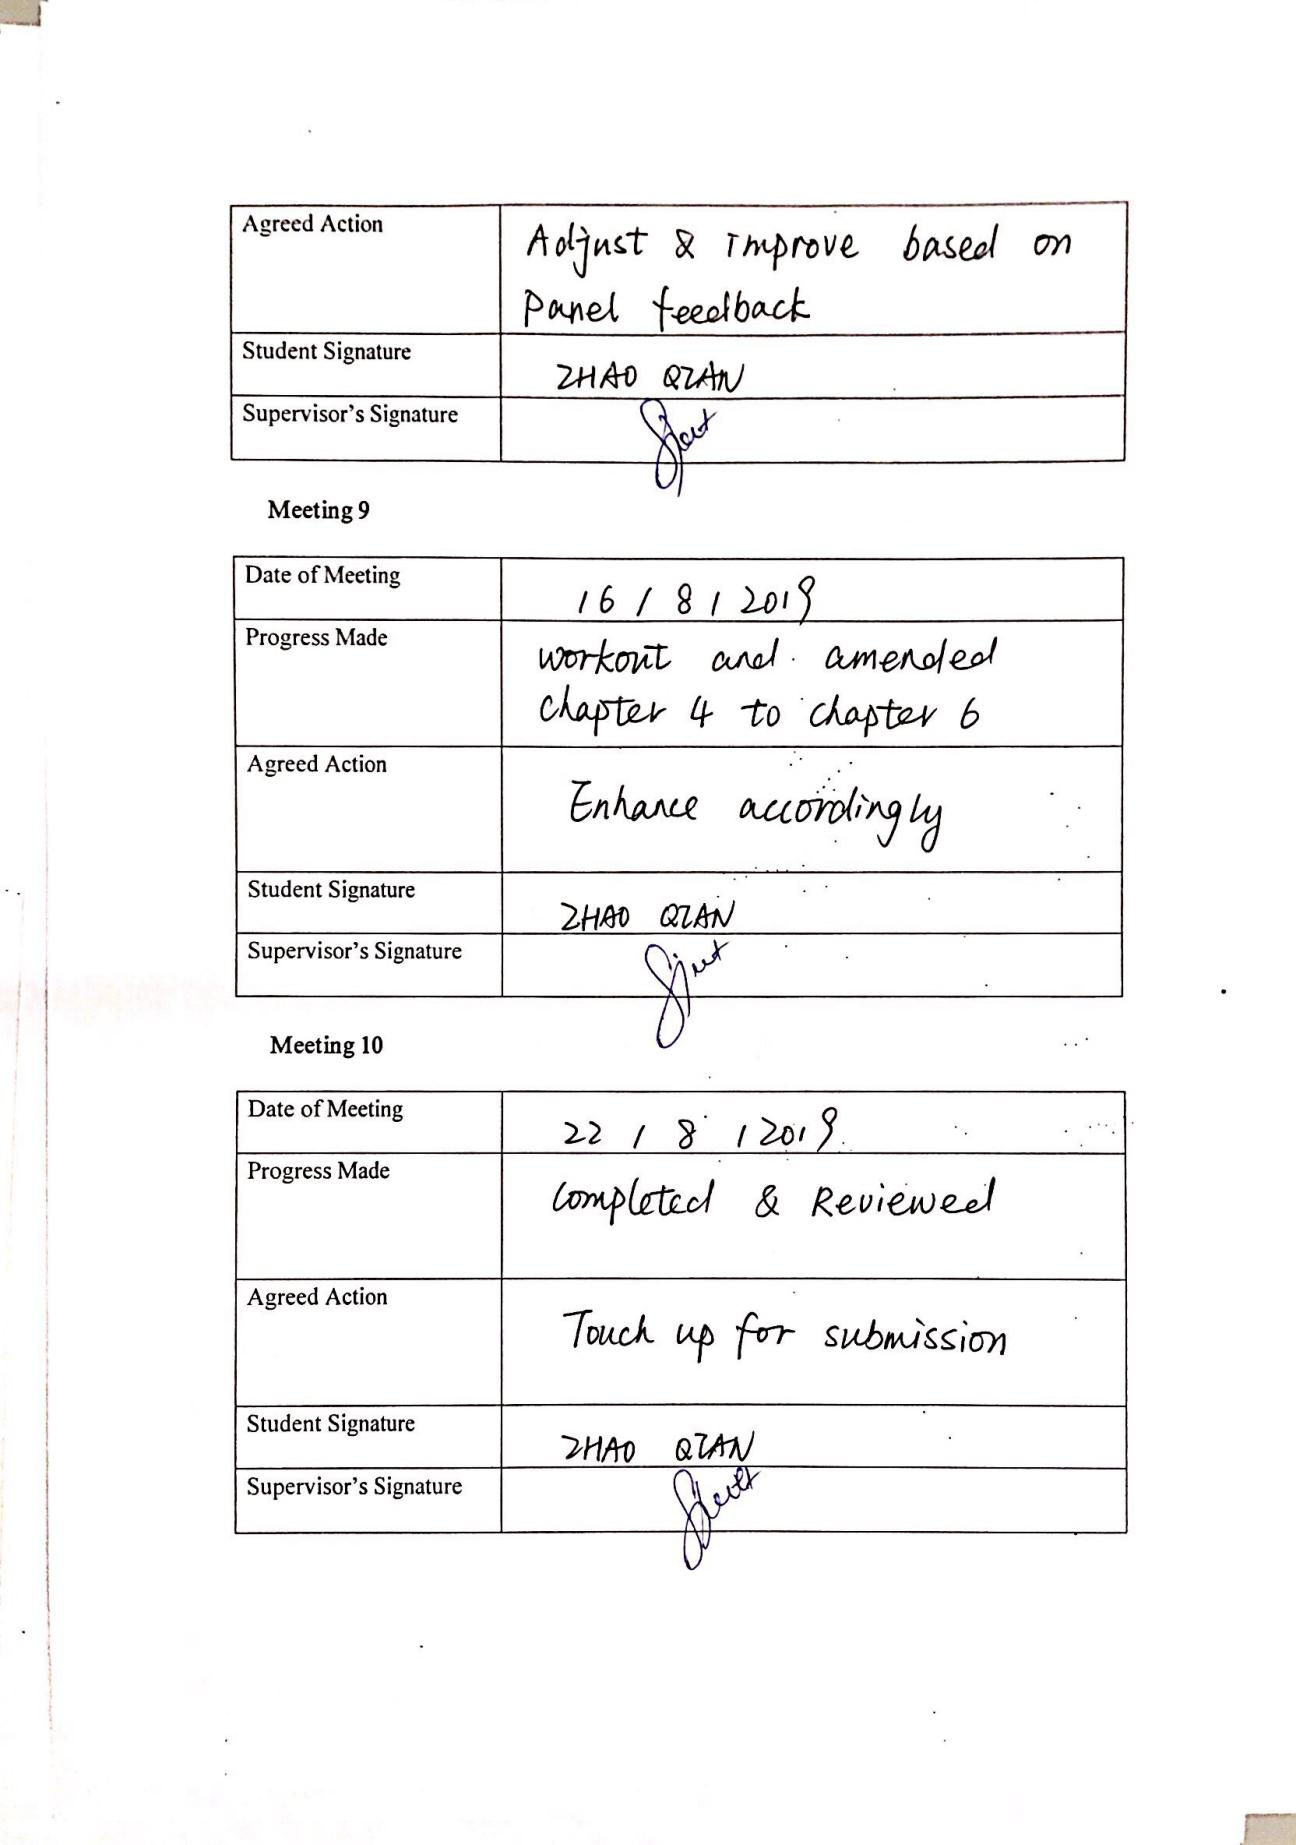 Agreed Action
Adjust & improve based on
Panel feedback
Student Signature
ZHAO QIAN
Supervisor's Signature
Meeting 9
Date of Meeting
16 / 8 / 2019
Progress Made
workout and amended
chapter 4 to chapter 6
Agreed Action
Enhance accordingly
Student Signature
ZHAO QIAN
Supervisor's Signature
Meeting 10
Date of Meeting
22 / 8 / 2019
Progress Made
Completed & Reviewed
Agreed Action
Touch up for submission
Student Signature
ZHAO QIAN
Supervisor's Signature